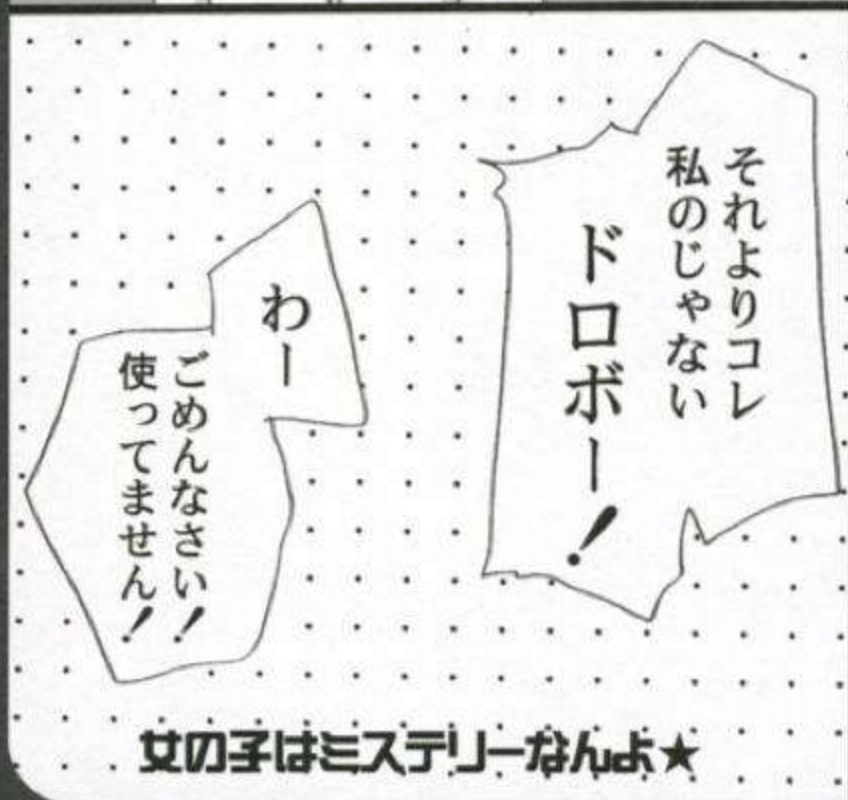 それよりコレ
私のじゃない
ドロボー!
わー
ごめんなさい!
使ってません!
女の子はミステリーなんよ★